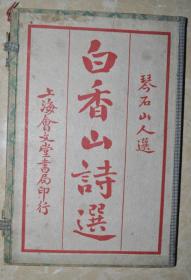 琴石山人選
白香山詩選
上海會文堂書局印行